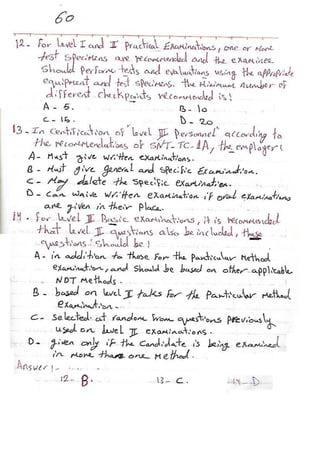 60
12- For level I and II Practical Examinations, one or more
test specimens are recommended and the examinee
should perform tests and evaluations using the appropriate
equipment and test specimens. The Minimum number of
different checkpoints recommended is!
A- 5. B- 10
C- 15. D- 20
13- In Certification of "level III Personnel" according to
the recommendations of SNT-TC-1A, the employer!
A- Must give written examinations.
B- Must give general and specific Examination.
C- May delete the specific examination.
D- Can waive written examination if oral examinations
are given in their place.
14- For level III Basic examinations, it is recommended
that level II questions also be included, these
questions! should be!
A- in addition to those for the Particular Method
examination, and should be based on other applicable
NDT Methods.
B- based on level I tasks for the Particular Method
examination.
C- selected at random from questions previously
used on level II examinations.
D- given only if the candidate is being examined
in more than one Method.
Answer!-
12- B. 13- C. 14- D